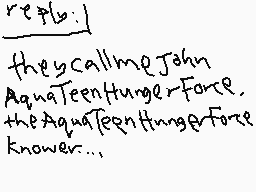 reply:
they call me John
AquaTeenHungerForce.
the AquaTeenHungerForce
knower...,